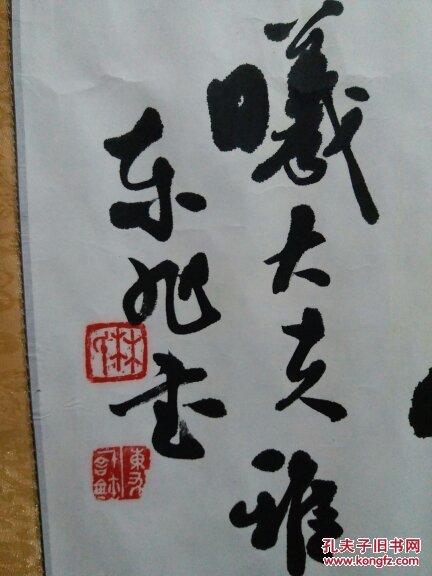 曦大夫雅
东旭书
孔夫子旧书网
kongfz.com